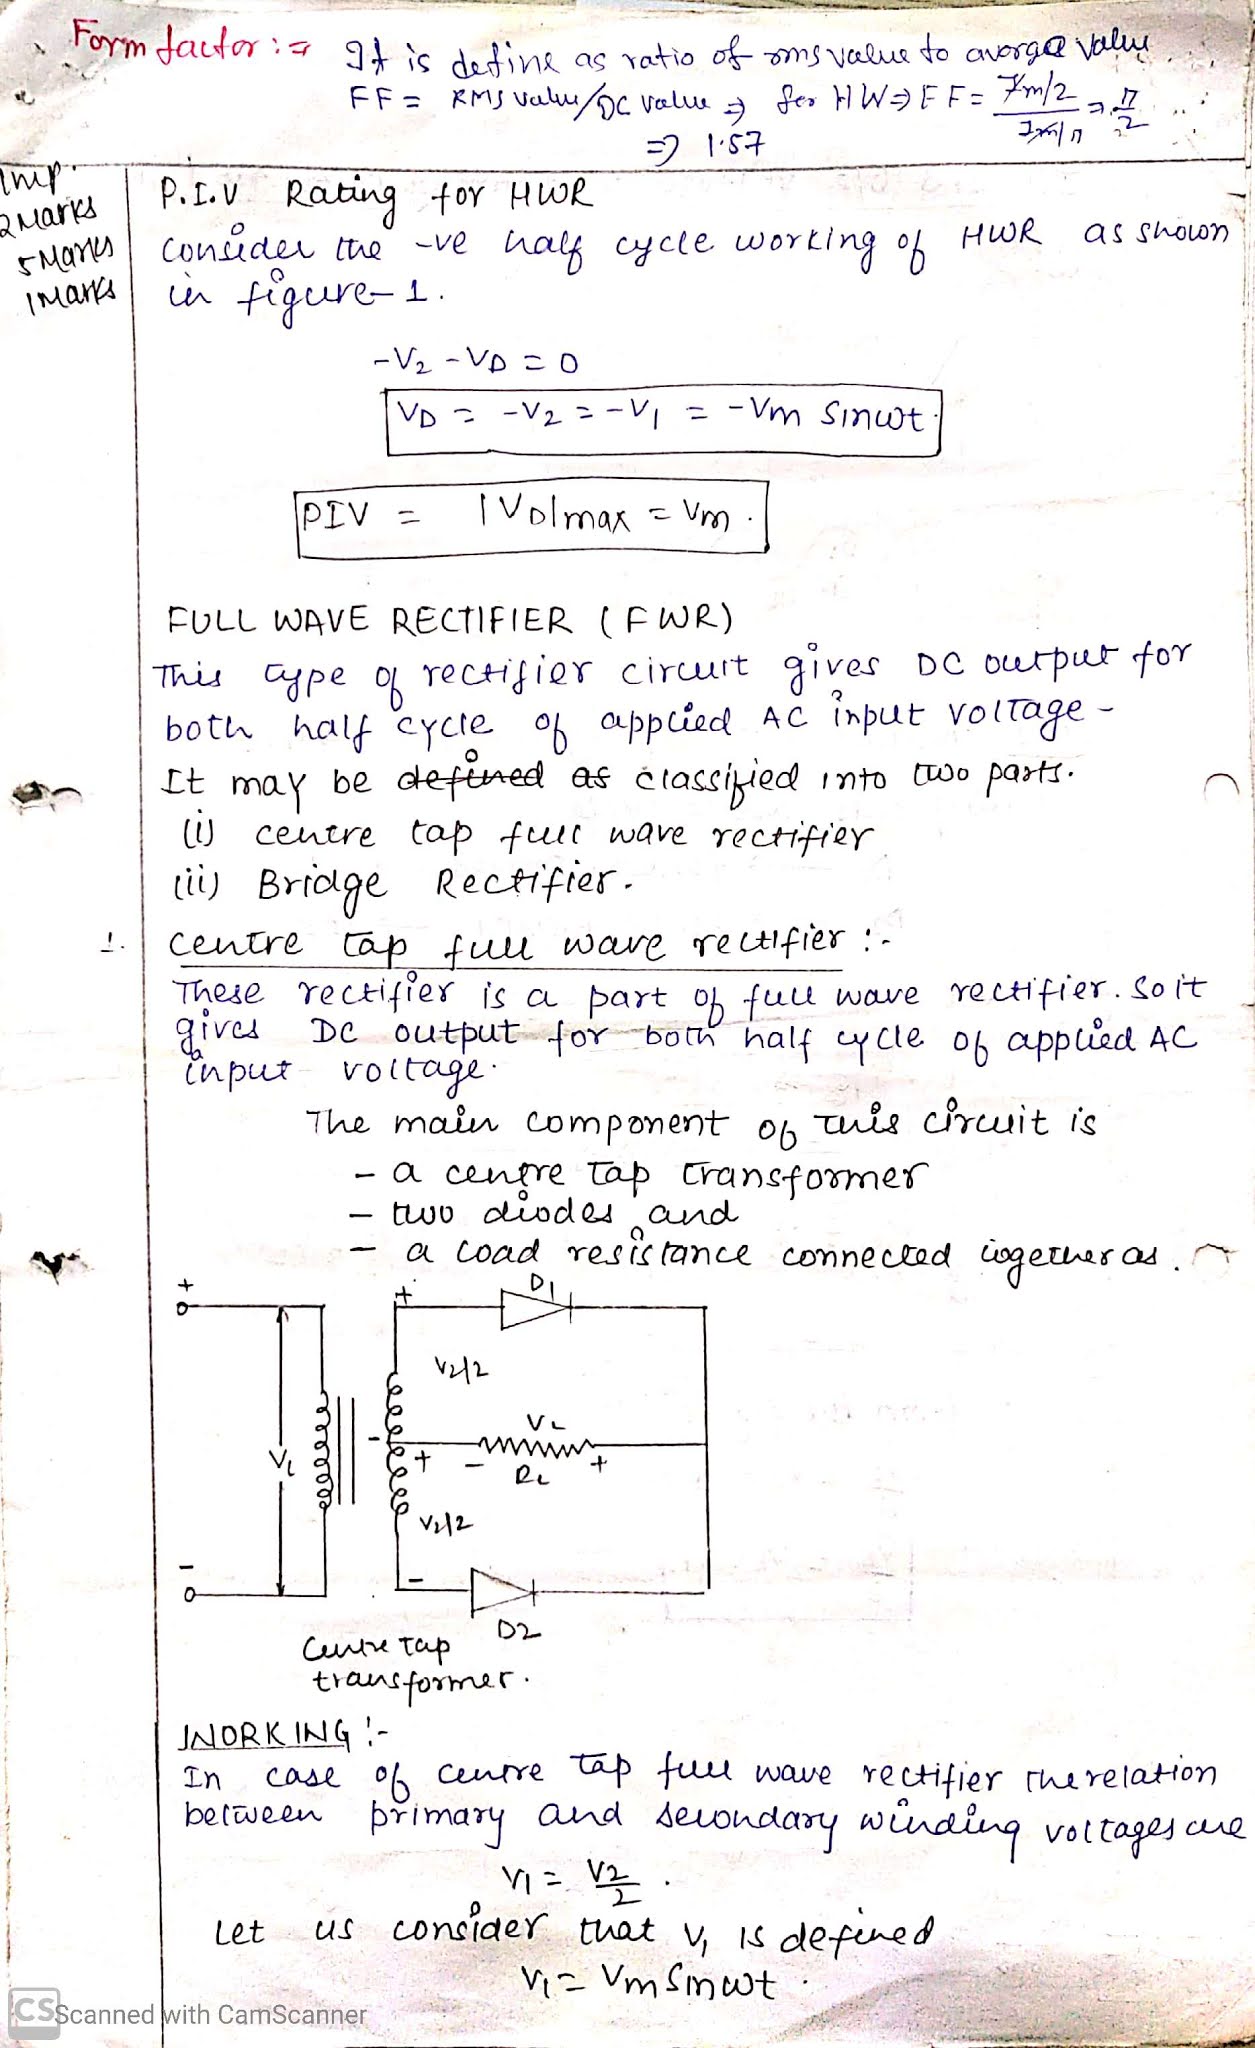 Form factor :⇒ It is define as ratio of rms value to average value
FF = RMS value/DC value ⇒ for HW ⇒ FF = Im/2 / Im/π ⇒ π/2
⇒ 1.57
Imp.
2 Marks
5 Marks
1 Marks
P.I.V Rating for HWR
Consider the -ve half cycle working of HWR as shown
in figure-1.
-V2 - VD = 0
VD = -V2 = -V1 = -Vm Sinωt.
PIV = |VD|max = Vm.
FULL WAVE RECTIFIER (FWR)
This type of rectifier circuit gives DC output for
both half cycle of applied AC input voltage -
It may be defined as classified into two parts.
(i) centre tap full wave rectifier
(ii) Bridge Rectifier.
1. centre tap full wave rectifier :-
These rectifier is a part of full wave rectifier. So it
gives DC output for both half cycle of applied AC
input voltage.
The main component of this circuit is
- a centre tap transformer
- two diodes and
- a load resistance connected together as.
+ + D1
V2/2
VL
V1 - + - RL +
V2/2
- -
D2
Centre tap
transformer.
WORKING :-
In case of centre tap full wave rectifier the relation
between primary and secondary winding voltages are
V1 = V2/2 .
Let us consider that V1 is defined
V1 = Vm Sinωt .
CS Scanned with CamScanner